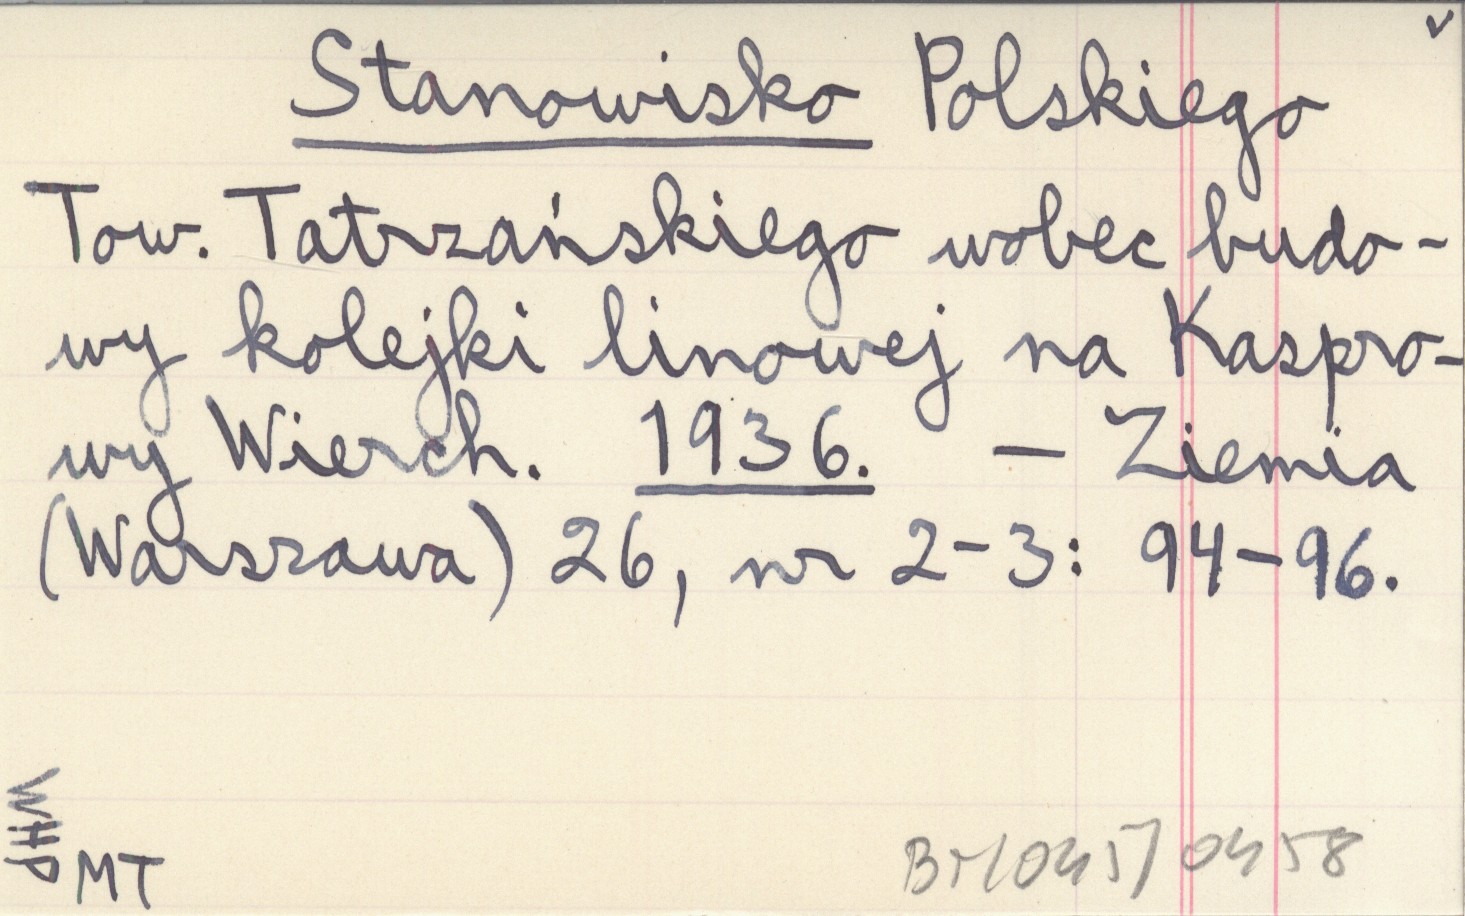 Stanowisko Polskiego
Tow. Tatrzańskiego wobec budo-
wy kolejki linowej na Kaspro-
wy Wierch. 1936. — Ziemia
(Warszawa) 26, nr 2-3: 94-96.
WHP
MT